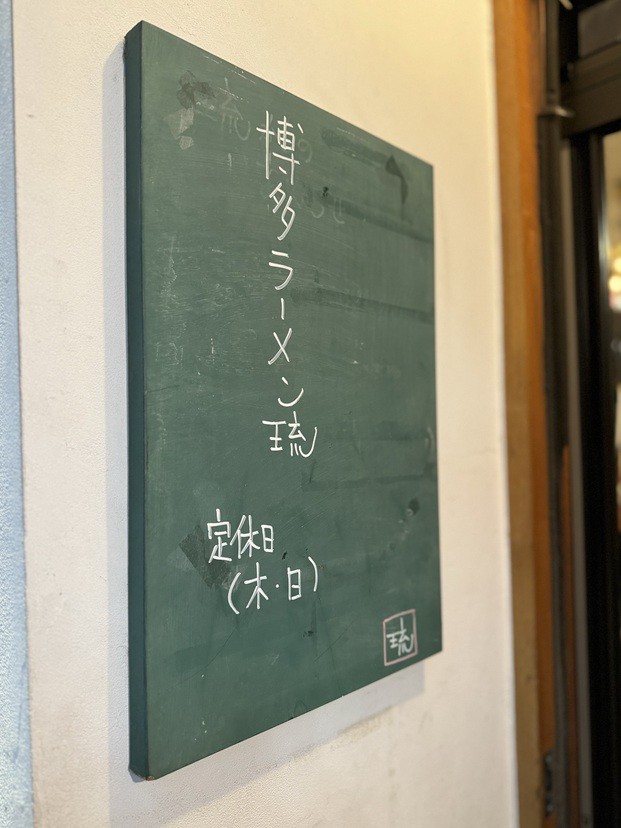 博多ラーメン琉
定休日
(木・日)
琉